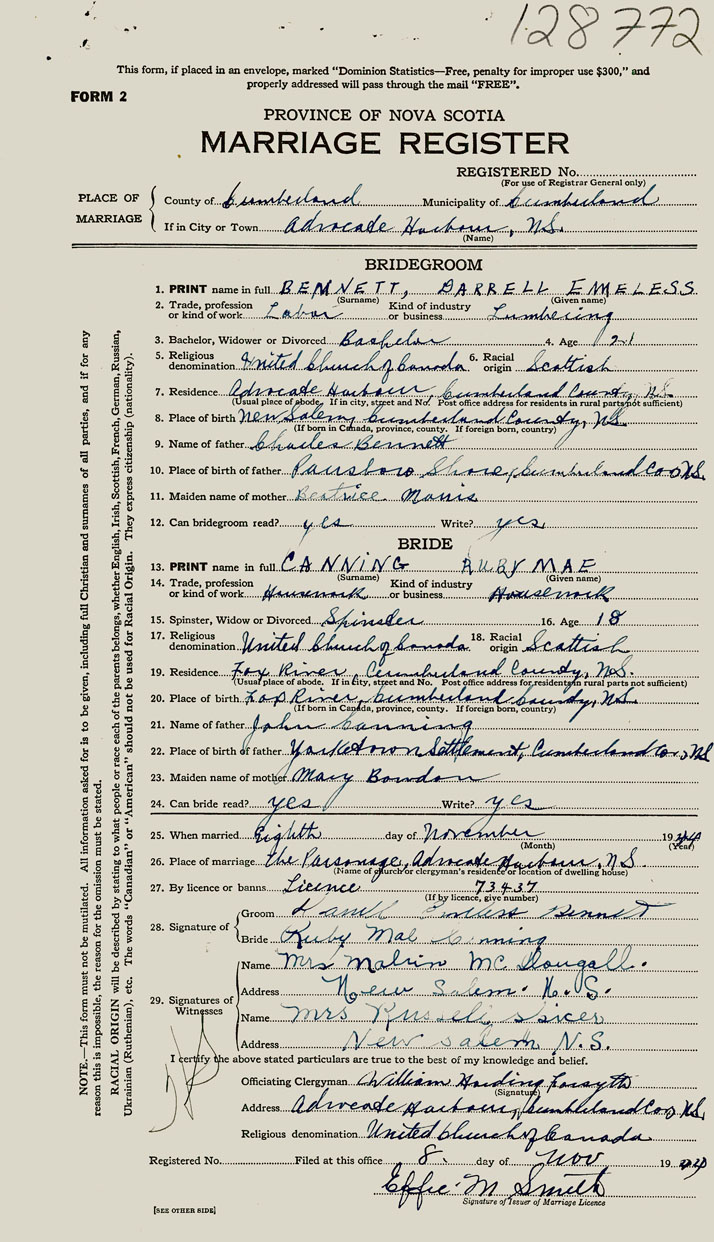 128772
This form, if placed in an envelope, marked "Dominion Statistics—Free, penalty for improper use $300," and
properly addressed will pass through the mail "FREE".
FORM 2
PROVINCE OF NOVA SCOTIA
MARRIAGE REGISTER
REGISTERED No.
(For use of Registrar General only)
PLACE OF MARRIAGE
County of Cumberland Municipality of Cumberland
If in City or Town Advocate Harbour, N.S.
(Name)
BRIDEGROOM
1. PRINT name in full BENNETT, DARRELL EMELESS
(Surname) (Given name)
2. Trade, profession or kind of work Labor Kind of industry or business Lumbering
3. Bachelor, Widower or Divorced Bachelor 4. Age 21
5. Religious denomination United Church of Canada 6. Racial origin Scottish
7. Residence Advocate Harbour, Cumberland County, N.S.
(Usual place of abode. If in city, street and No. Post office address for residents in rural parts not sufficient)
8. Place of birth New Salem, Cumberland County, N.S.
(If born in Canada, province, county. If foreign born, country)
9. Name of father Charles Bennett
10. Place of birth of father Parrsboro Shore, Cumberland Co, N.S.
11. Maiden name of mother Beatrice Morris
12. Can bridegroom read? yes Write? yes
BRIDE
13. PRINT name in full CANNING RUBY MAE
(Surname) (Given name)
14. Trade, profession or kind of work Housework Kind of industry or business Housework
15. Spinster, Widow or Divorced Spinster 16. Age 18
17. Religious denomination United Church of Canada 18. Racial origin Scottish
19. Residence Fox River, Cumberland County, N.S.
(Usual place of abode. If in city, street and No. Post office address for residents in rural parts not sufficient)
20. Place of birth Fox River, Cumberland County, N.S.
(If born in Canada, province, county. If foreign born, country)
21. Name of father John Canning
22. Place of birth of father Yorketown Settlement, Cumberland Co, N.S
23. Maiden name of mother Mary Bowdon
24. Can bride read? yes Write? yes
25. When married Eighth day of November 19
(Month) (Year)
26. Place of marriage The Parsonage, Advocate Harbour, N.S.
(Name of church or clergyman's residence or location of dwelling house)
27. By licence or banns Licence 73437
(If by licence, give number)
28. Signature of
Groom Bennett
Bride Ruby Mae Canning
29. Signatures of Witnesses
Name Mrs McDougall.
Address New Salem. N.S.
Name Mrs Russell Spicer
Address New Salem N.S.
I certify the above stated particulars are true to the best of my knowledge and belief.
Officiating Clergyman William Harding Forsyth
(Signature)
Address Advocate Harbour, Cumberland Co, N.S.
Religious denomination United Church of Canada
Registered No. Filed at this office 8. day of Nov 19
Effie M Smith
Signature of Issuer of Marriage Licence
[SEE OTHER SIDE]
NOTE.—This form must not be mutilated. All information asked for is to be given, including full Christian and surnames of all parties, and if for any
reason this is impossible, the reason for the omission must be stated.
RACIAL ORIGIN will be described by stating to what people or race each of the parents belongs, whether English, Irish, Scottish, French, German, Russian,
Ukrainian (Ruthenian), etc. The words "Canadian" or "American" should not be used for Racial Origin. They express citizenship (nationality).